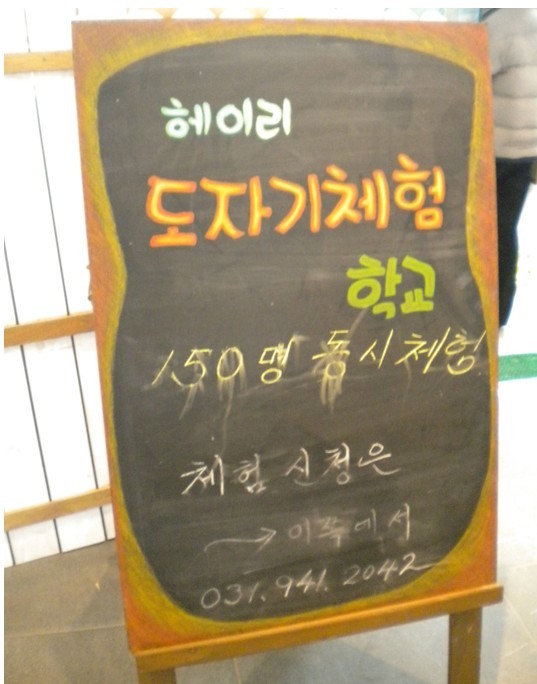 헤이리
도자기체험
학교
150명 동시체험
체험 신청은
→ 이쪽에서
031.941.2042